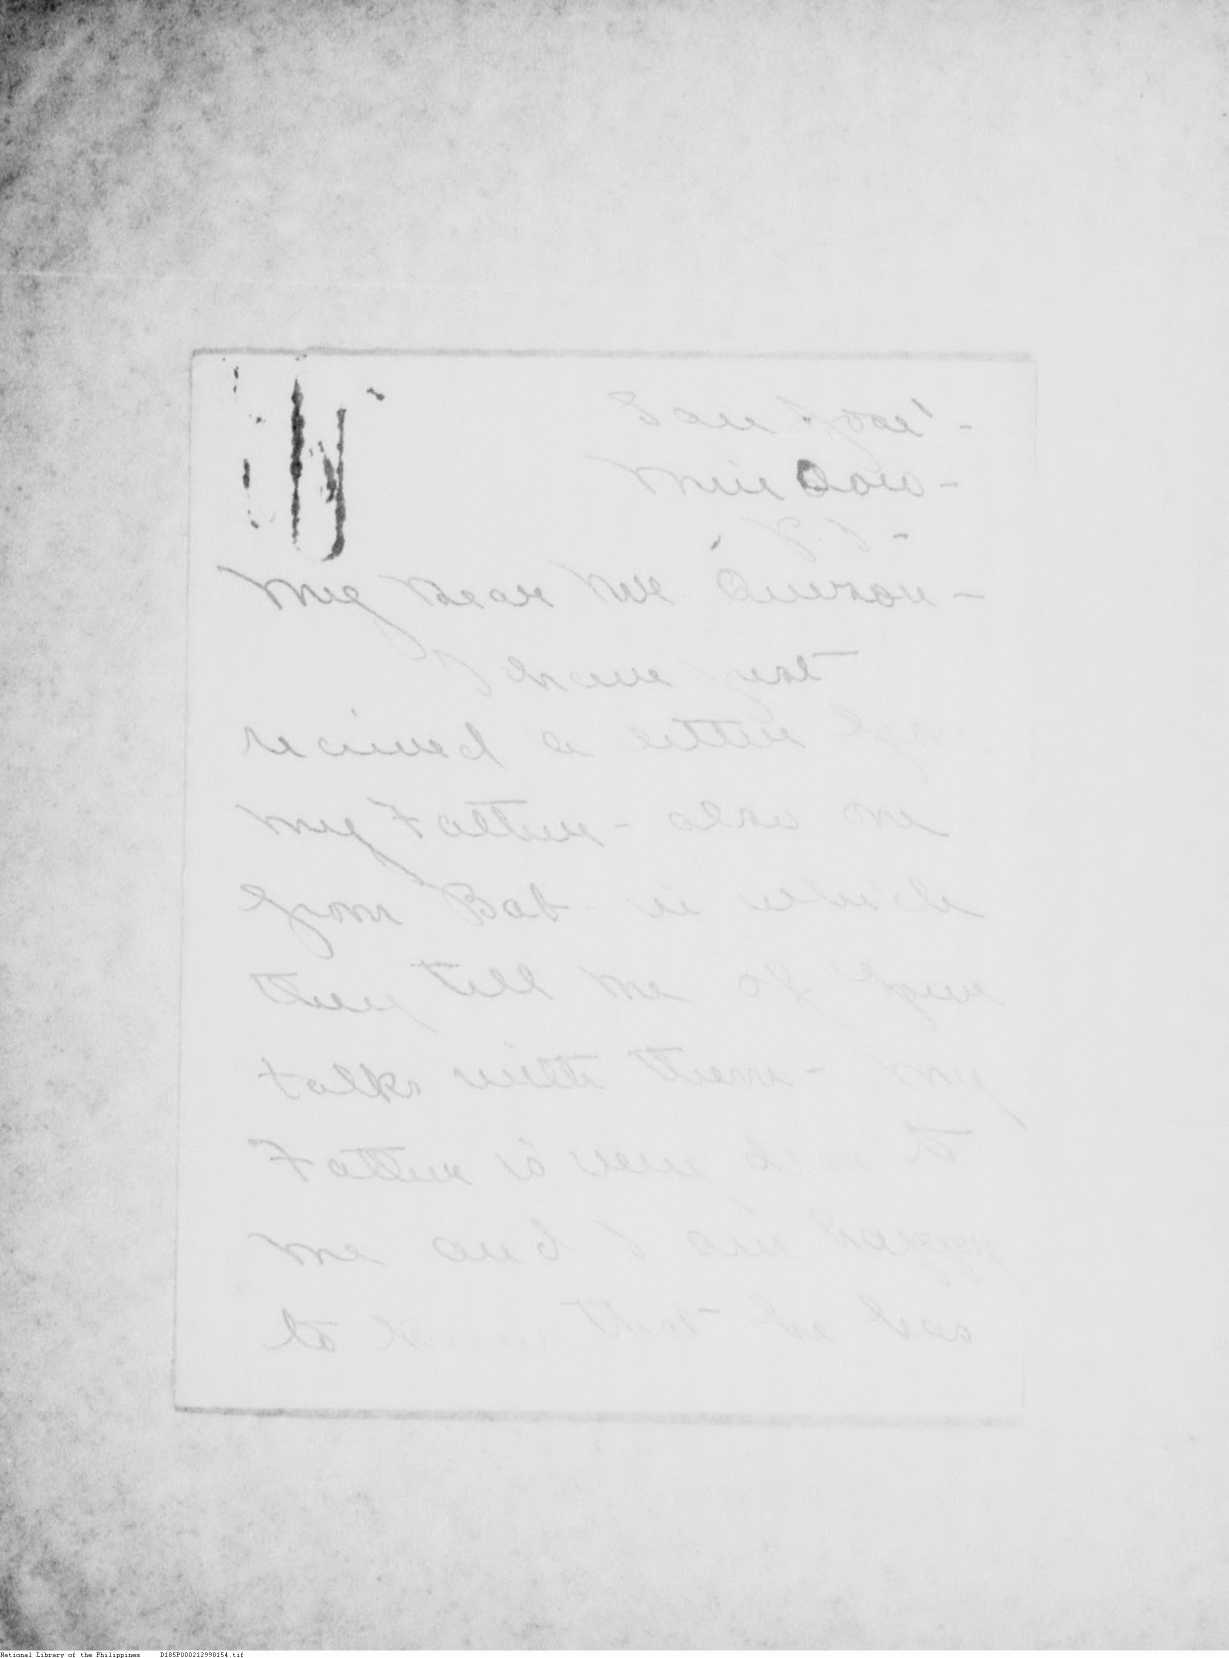 San José -
Mindoro -
P.I. -
My Dear Mr Quezon -
I have just
recieved a letter from
my Father - also one
from Bab - in which
they tell me of your
talks with them - My
Father is very dear to
me and I am happy
to know that he has
National Library of the Philippines D185P000212998154.tif